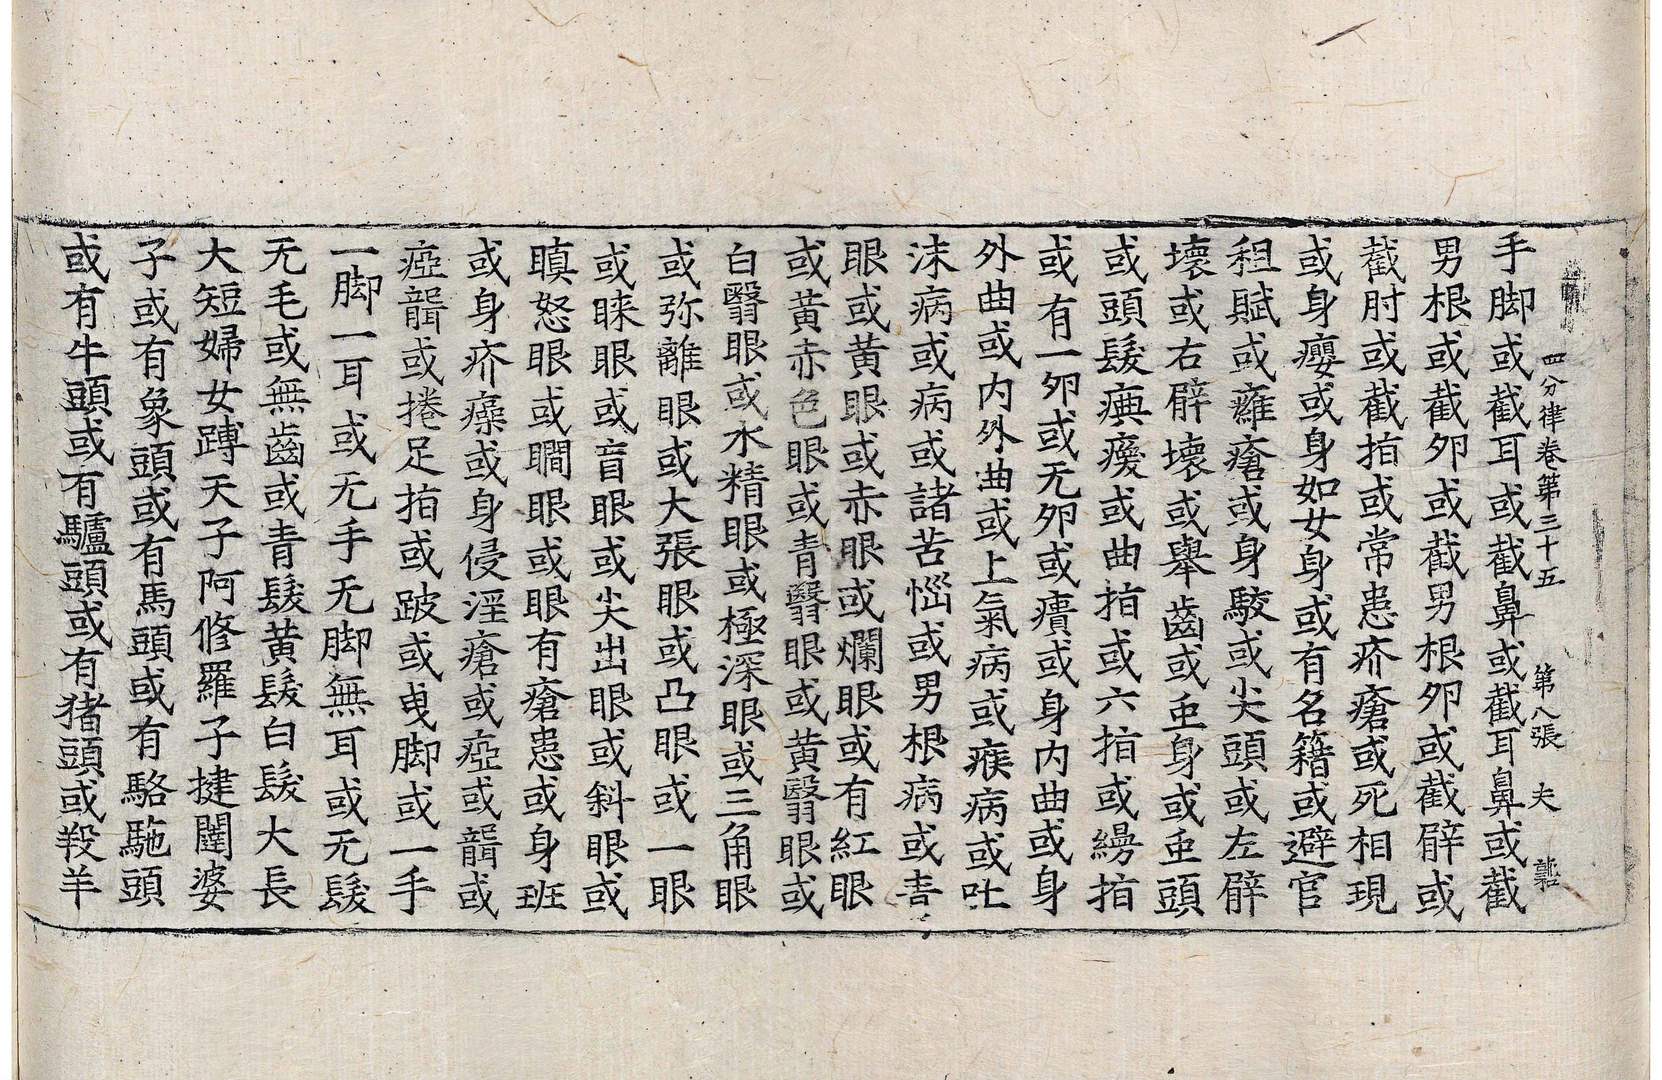 四分律卷第三十五　第八張　夫
手脚或截耳或截鼻或截耳鼻或截
男根或截夘或截男根夘或截臂或
截肘或截指或常患疥瘡或死相現
或身癭或身如女身或有名籍或避官
租賦或癰瘡或身駮或尖頭或左臂
壞或右臂壞或舉齒或垂身或垂頭
或頭髮痶瘓或曲指或六指或縵指
或有一夘或无夘或㿗或身内曲或身
外曲或内外曲或上氣病或瘊病或吐
沫病或病或諸苦惱或男根病或青
眼或黃眼或赤眼或爛眼或有紅眼
或黃赤色眼或青翳眼或黃翳眼或
白翳眼或水精眼或極深眼或三角眼
或弥離眼或大張眼或凸眼或一眼
或睞眼或盲眼或尖出眼或斜眼或
瞋怒眼或瞷眼或眼有瘡患或身班
或身疥癩或身侵淫瘡或瘂或聾或
瘂聾或捲足指或跛或曳脚或一手
一脚一耳或无手无脚無耳或无髮
无毛或無齒或青髮黃髮白髮大長
大短婦女蹲天子阿修羅子揵闥婆
子或有象頭或有馬頭或有駱駞頭
或有牛頭或有驢頭或有猪頭或羖羊